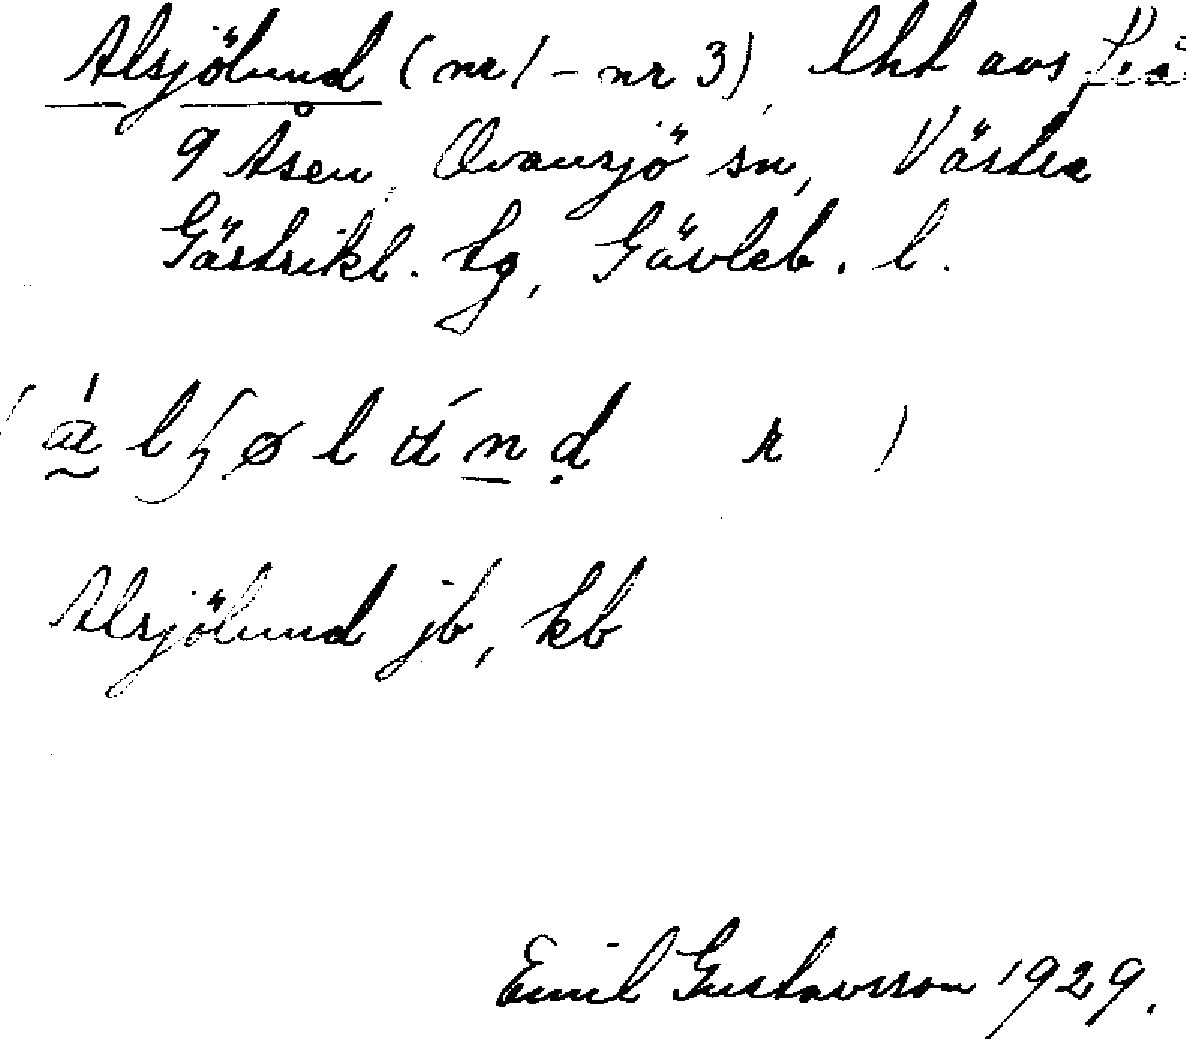 Alsjölund (nr 1 - nr 3), lht avs
9 Åsen, Ovansjö sn, Västra
Gästrikl. tg, Gävleb. l.
Alsjölund jb, kb
Emil Gustavsson 1929.